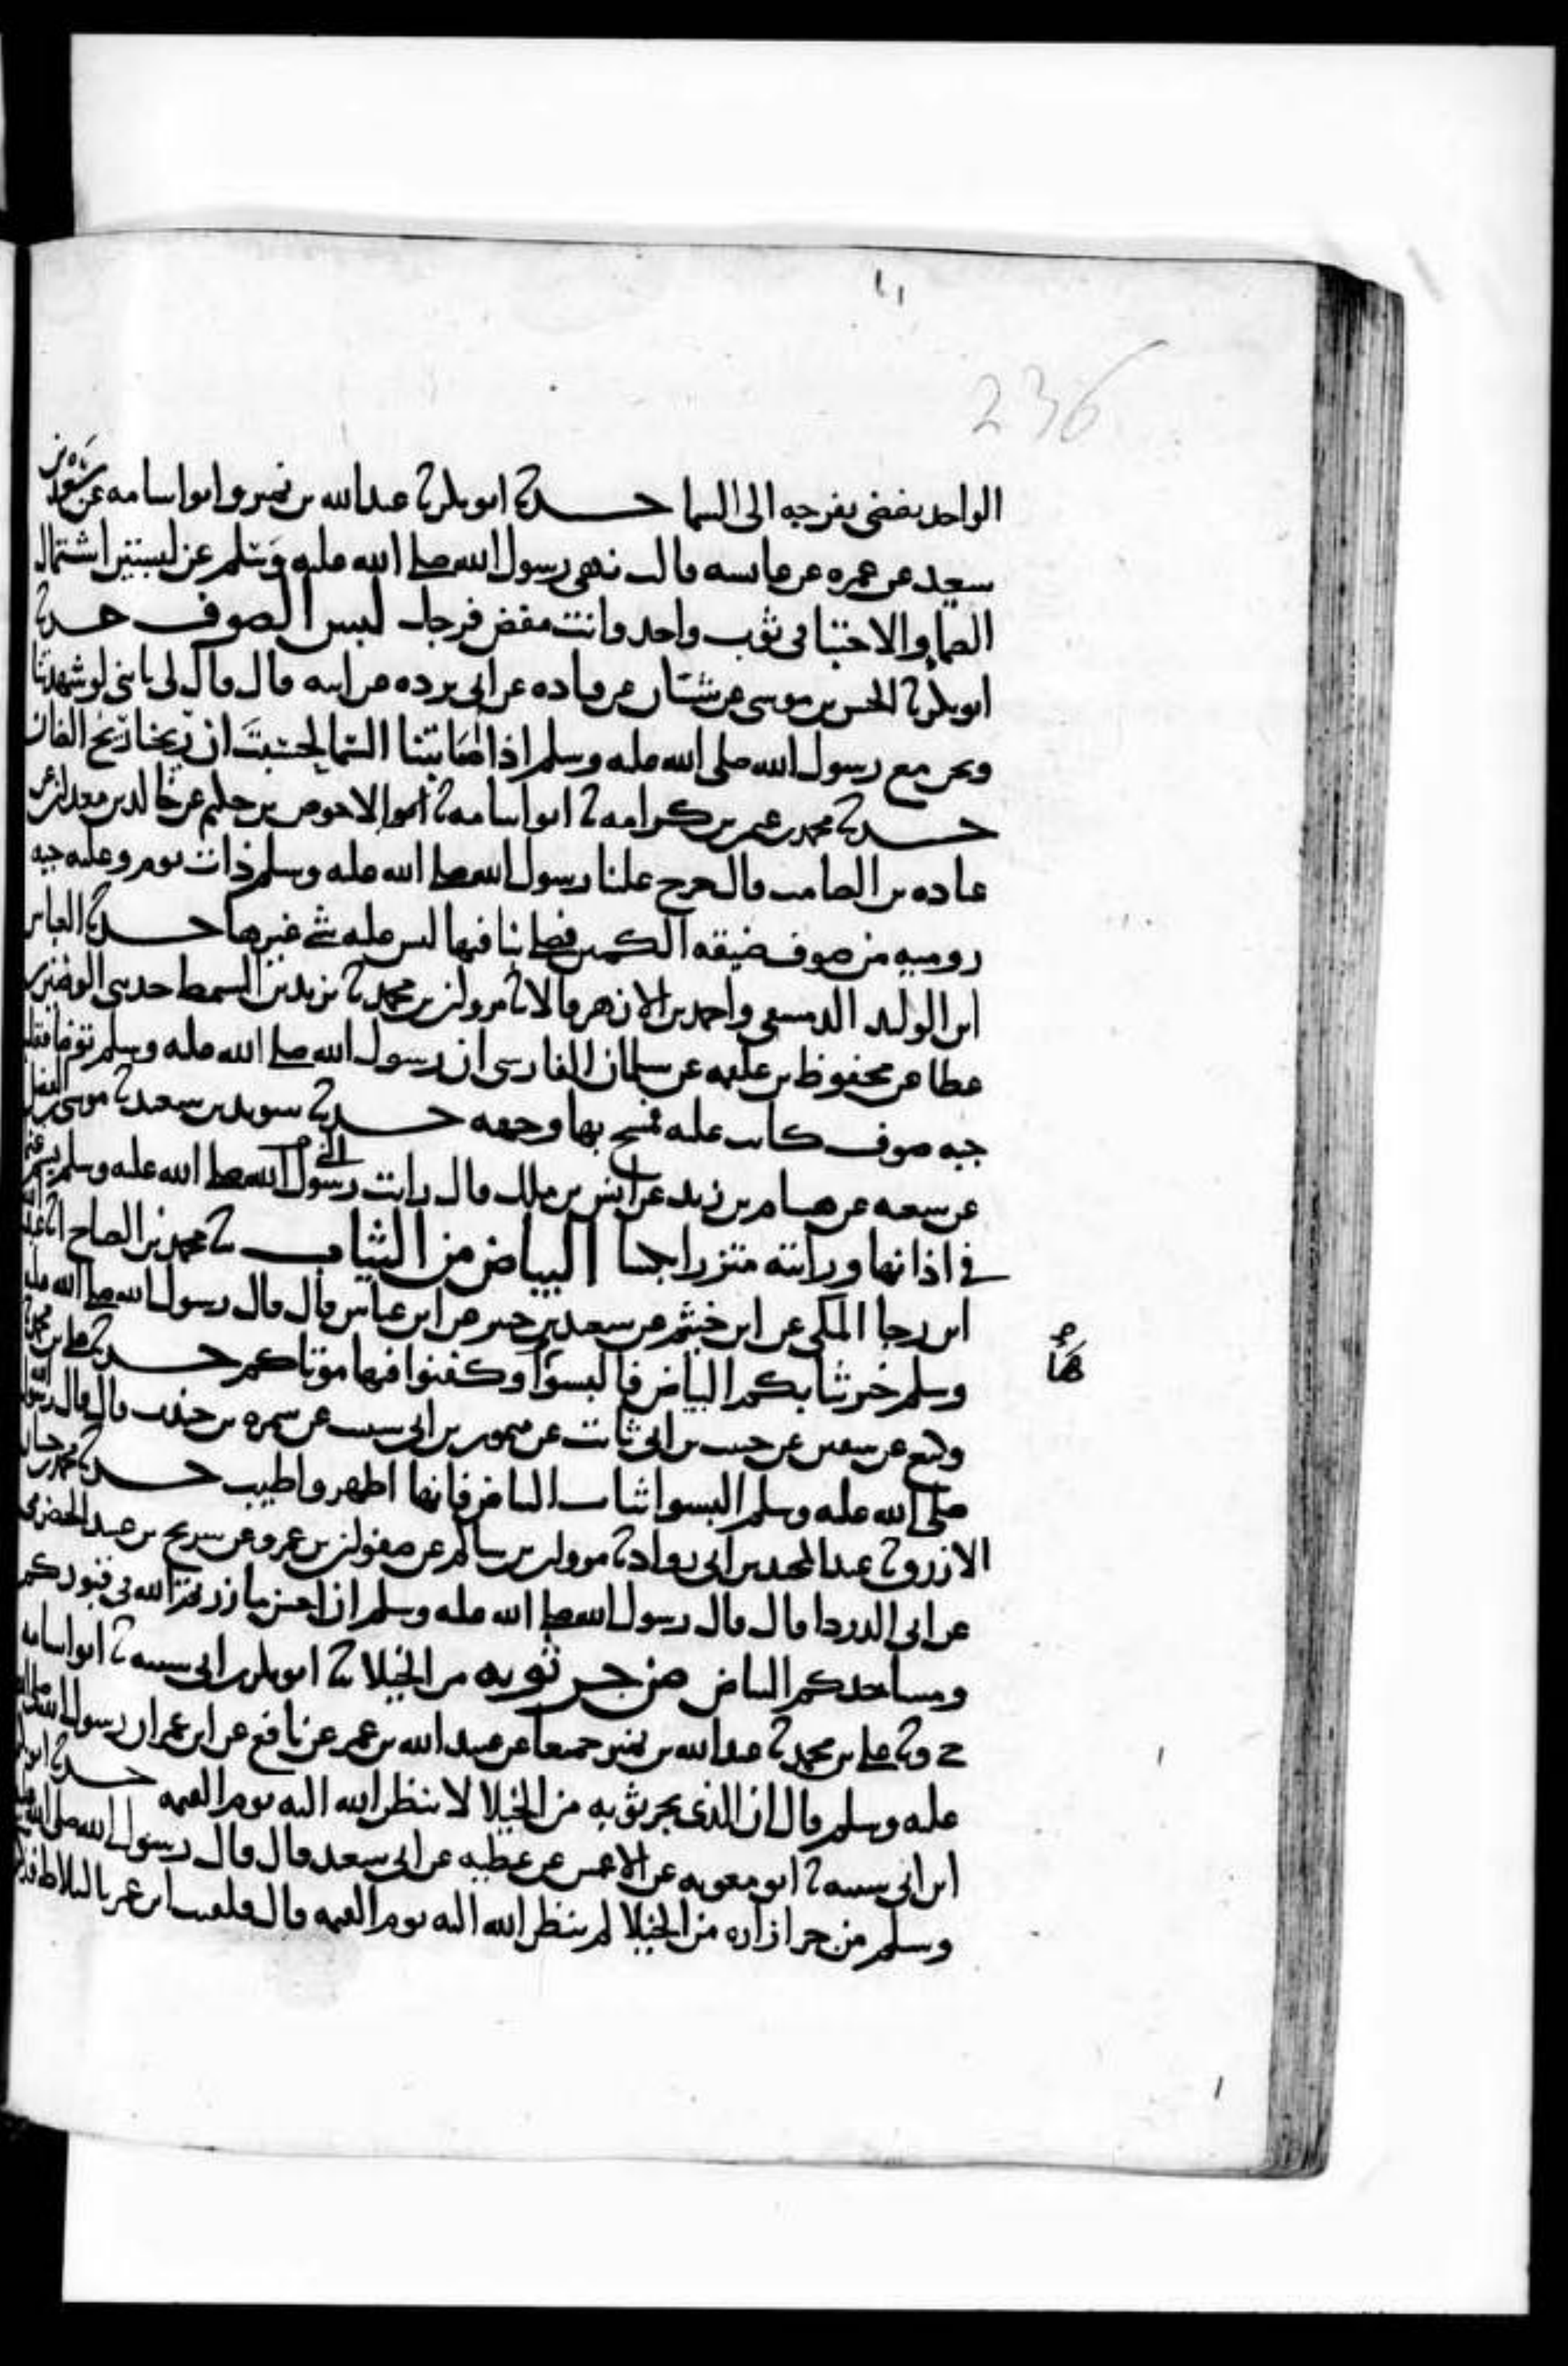 236
الواحد يفضي بفرجه الى السما حدثنا ابو بكر ثنا عبد الله بن نمير وابو اسامه عن سعد بن
سعيد عن عمره عن عايشه قالت نهى رسول الله صلى الله عليه وسلم عن لبستين اشتمال
الصما والاحتبا في ثوب واحد وانت مفض فرجك لبس الصوف حدثنا
ابو بكر ثنا الحسن بن موسى عن شيبان عن قتاده عن ابي برده عن ابيه قال قال لي يا بني لو شهدتنا
ونحن مع رسول الله صلى الله عليه وسلم اذا اصابتنا السما لحسبت ان ريحنا ريح الضان
حدثنا محمد بن عثمن بن كرامه ثنا ابو اسامه ثنا الاحوص بن حكيم عن خالد بن معدان عن
عباده بن الصامت قال خرج علينا رسول الله صلى الله عليه وسلم ذات يوم وعليه جبه
روميه من صوف ضيقه الكمين فصلى بنا فيها ليس عليه شي غيرها حدثنا العباس
ابن الوليد الدمشقي واحمد بن الازهر قالا ثنا مروان بن محمد ثنا يزيد بن السمط حدثني الوضين بن
عطا عن محفوظ بن علقمه عن سلمان الفارسي ان رسول الله صلى الله عليه وسلم توضا فقلب
جبه صوف كانت عليه فمسح بها وجهه حدثنا سويد بن سعيد ثنا موسى بن الفضل
عن شعبه عن هشام بن زيد عن انس بن ملك قال رايت رسول الله صلى الله عليه وسلم يسم غنما
في اذانها ورايته متزرا بكسا البياض من الثياب ثنا محمد بن الصباح انا عبد الله
ابن رجا المكي عن ابن خثيم عن سعيد بن جبير عن ابن عباس قال قال رسول الله صلى الله عليه
وسلم خير ثيابكم البياض فالبسوا وكفنوا فيها موتاكم حدثنا علي بن محمد ثنا
ها
وكيع عن سفين عن حبيب بن ابي ثابت عن ميمون بن ابي شبيب عن سمره بن جندب قال قال رسول الله
صلى الله عليه وسلم البسوا ثياب البياض فانها اطهر واطيب حدثنا محمد بن حسان
الازرق ثنا عبد المجيد بن ابي رواد ثنا مروان بن سالم عن صفوان بن عمرو عن شريح بن عبيد الحضرمي
عن ابي الدردا قال قال رسول الله صلى الله عليه وسلم ان احسن ما زرتم الله في قبوركم
ومساجدكم البياض من جر ثوبه من الخيلا ثنا ابو بكر بن ابي شيبه ثنا ابو اسامه
ح وثنا علي بن محمد ثنا عبد الله بن نمير جميعا عن عبيد الله بن عمر عن نافع عن ابن عمر ان رسول الله صلى الله
عليه وسلم قال ان الذي يجر ثوبه من الخيلا لا ينظر الله اليه يوم القيمه حدثنا ابو بكر
ابن ابي شيبه ثنا ابو معويه عن الاعمش عن عطيه عن ابي سعيد قال قال رسول الله صلى الله عليه
وسلم من جر ازاره من الخيلا لم ينظر الله اليه يوم القيمه قال فلقيت ابن عمر بالبلاط فذكرت